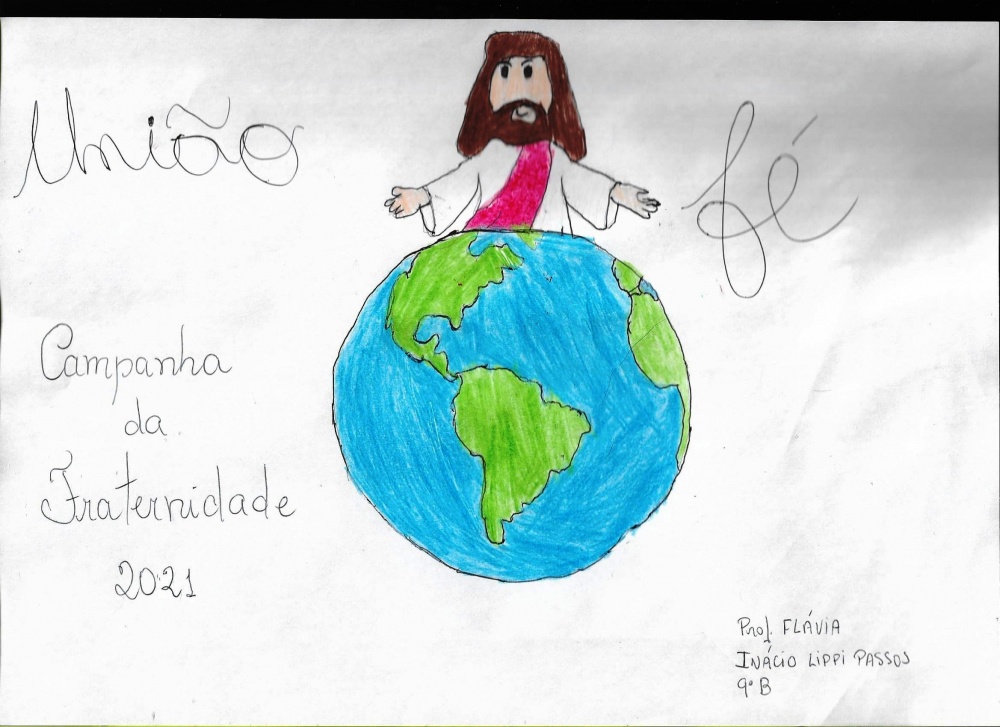 União
fé
Campanha
da
Fraternidade
2021
Prof. FLÁVIA
INÁCIO LIPPI PASSOS
9º B